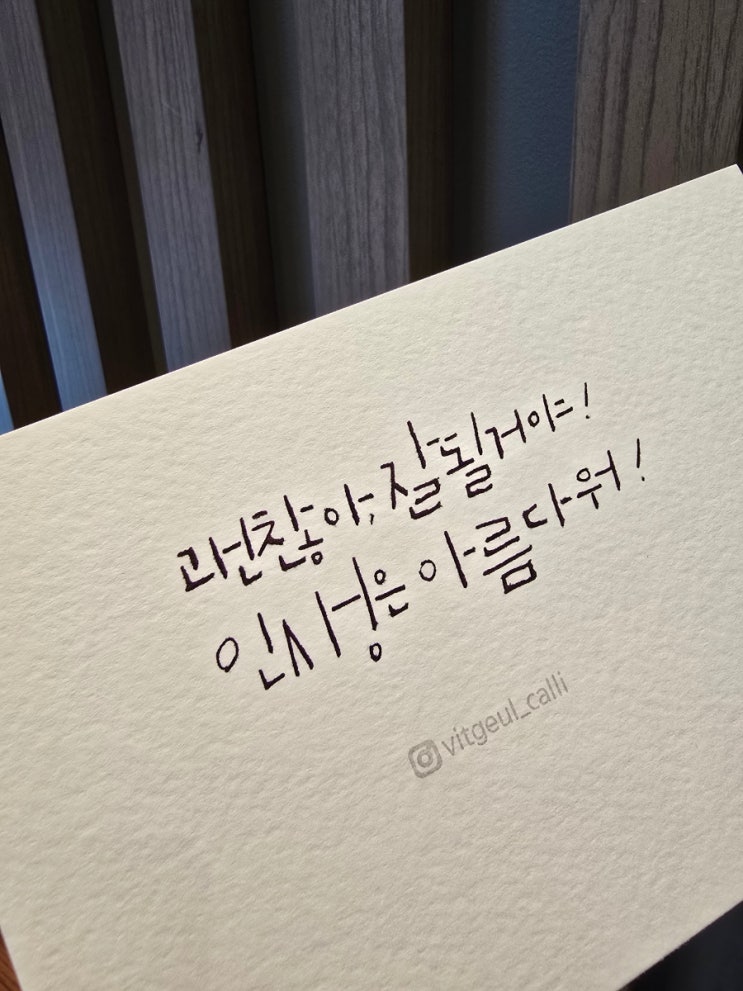 괜찮아, 잘될거야!
인생은 아름다워!
vitgeul_calli